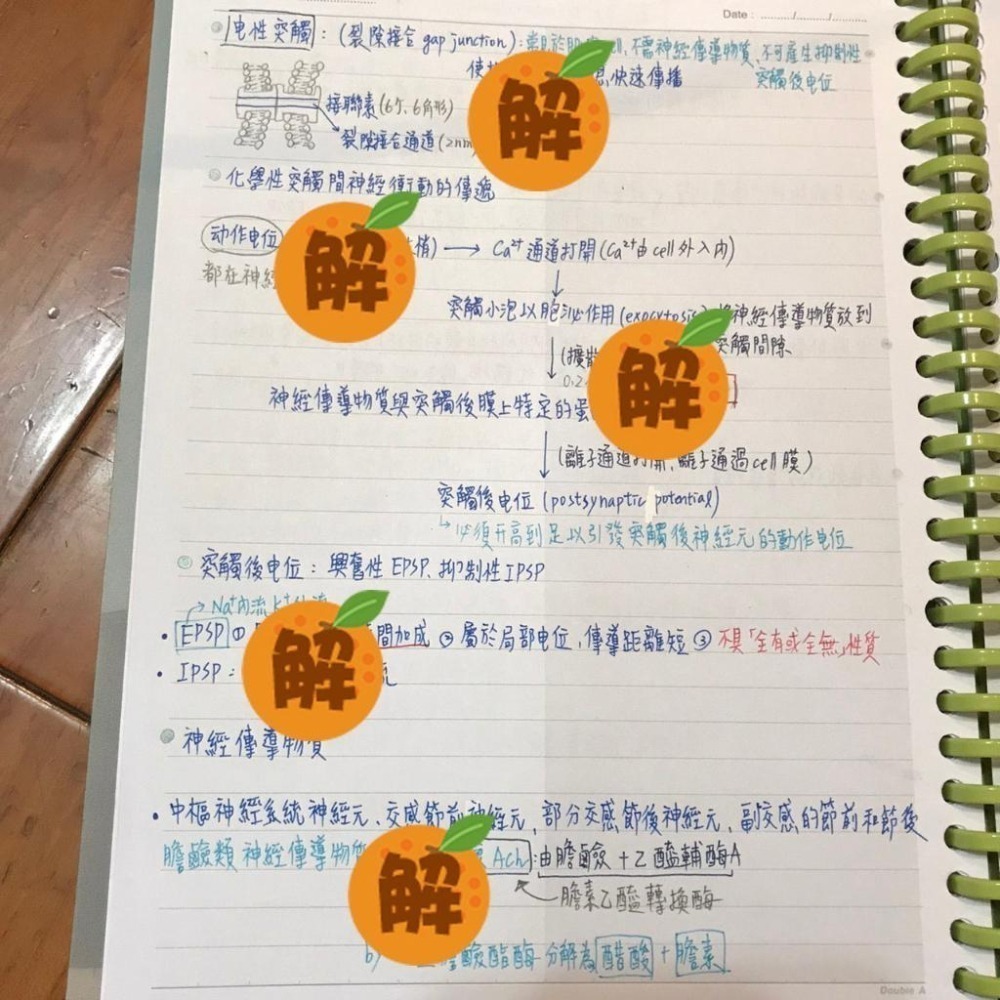 Date : ....../....../......
电性突觸：(裂隙接合 gap junction)：常見於 cell, 不需神經傳導物質、不可產生抑制性
使 快速傳播 突觸後电位
接聯素 (6个、6角形)
裂隙接合通道 (2nm
化學性突觸間神經衝動的傳遞
动作电位 梢) → Ca²⁺ 通道打開 (Ca²⁺由 cell 外入內)
都在神經
突觸小泡以胞泌作用 (exocytosis) 將神經傳導物質放到
(擴散 突觸間隙
0.2
神經傳導物質與突觸後膜上特定的蛋
(離子通道打開, 離子通過 cell 膜)
突觸後电位 (postsynaptic potential)
↳ 必須升高到足以引發突觸後神經元的動作电位
突觸後电位：興奮性 EPSP、抑制性 IPSP
→ Na⁺內流 K⁺
• EPSP ① 間加成 ② 屬於局部电位, 傳導距離短 ③ 不具「全有或全無」性質
• IPSP： 流
神經傳導物質
• 中樞神經系統神經元、交感節前神經元、部分交感節後神經元、副交感的節前和節後
膽鹼類神經傳導物質 ACh：由膽鹼 + 乙醯輔酶A
膽素乙醯轉換酶
b) 膽鹼酯酶 分解為 醋酸 + 膽素
Double A
解
解
解
解
解